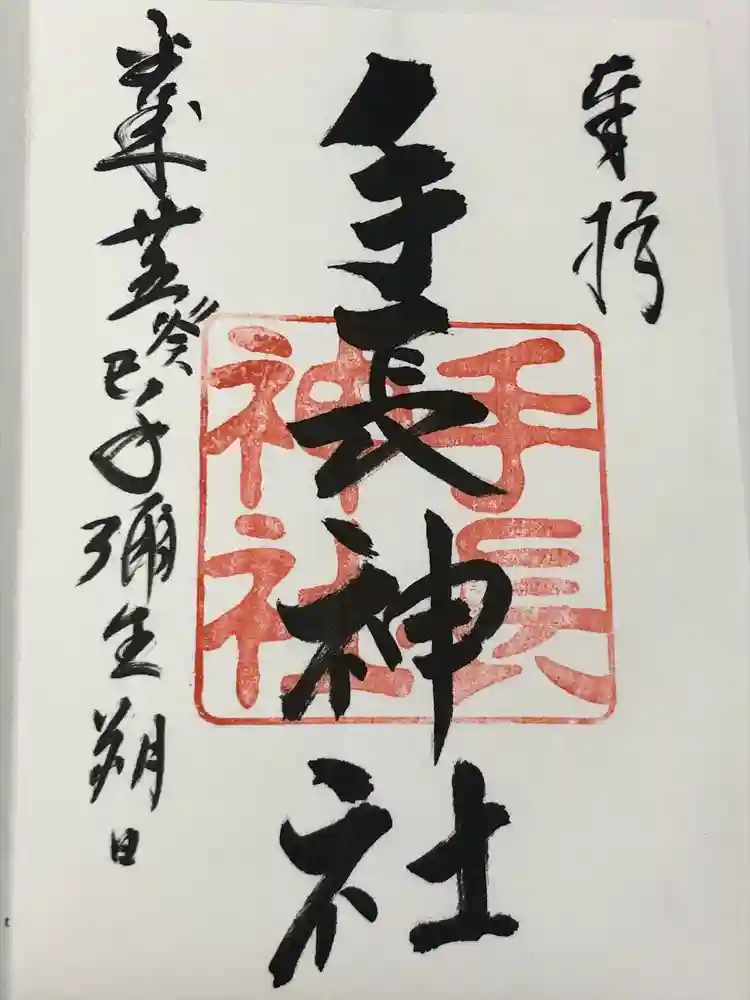 奉拝
手長神社
手長
神社
平成廿五癸巳年彌生朔日